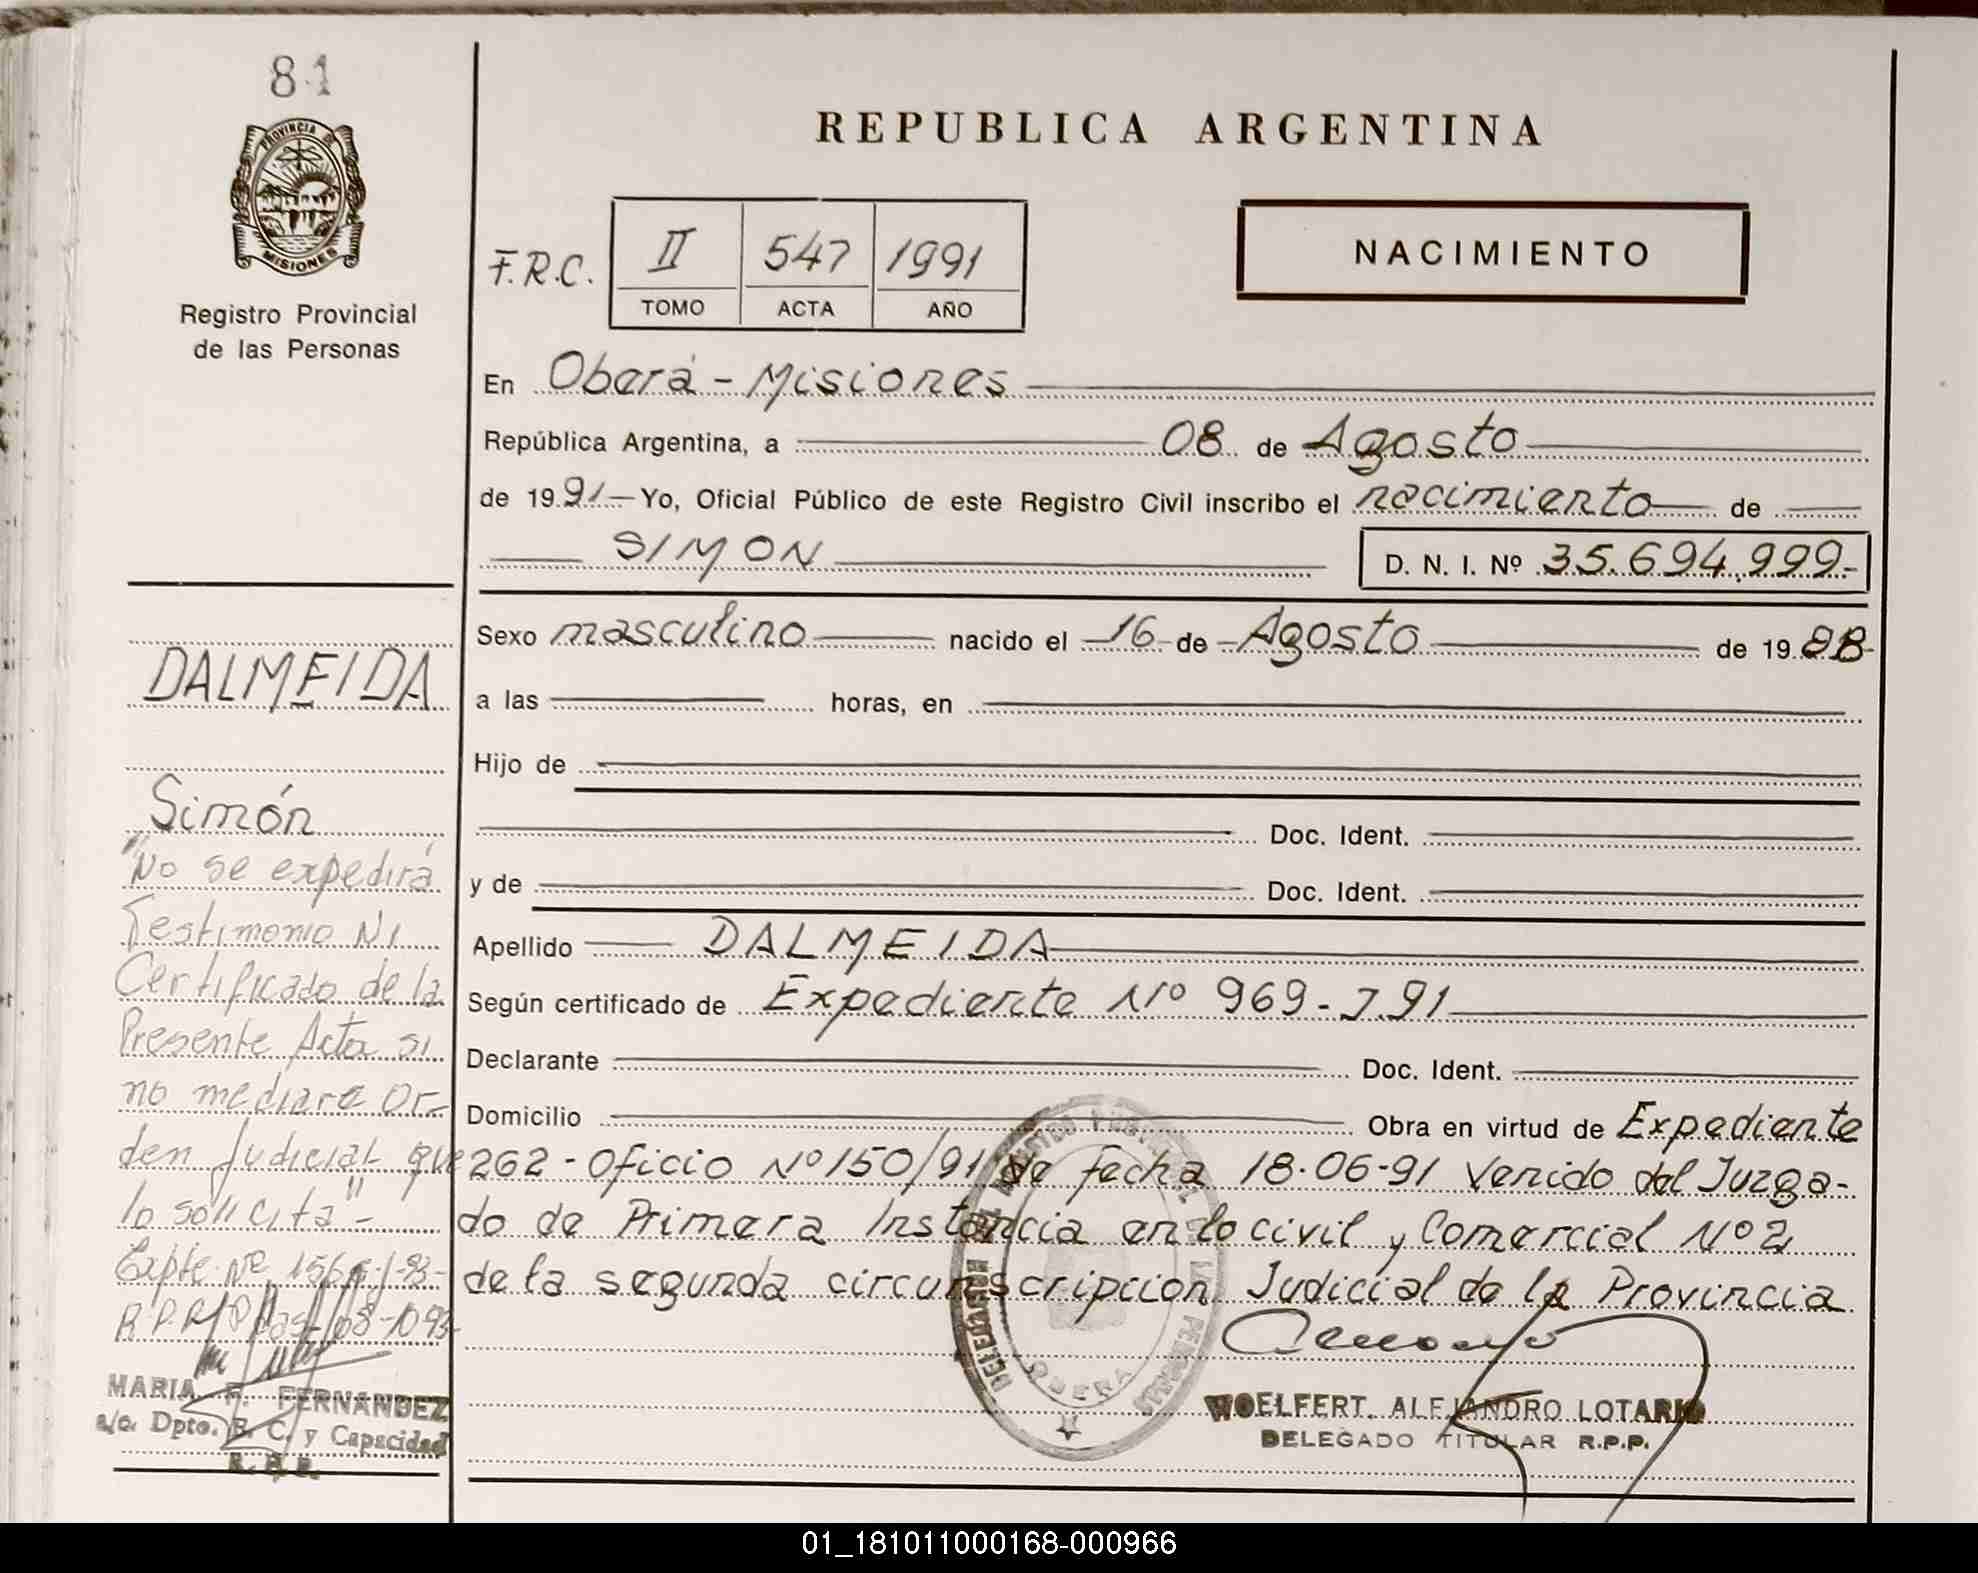 81
PROVINCIA DE
MISIONES
Registro Provincial
de las Personas
REPUBLICA ARGENTINA
F.R.C. II 547 1991
TOMO ACTA AÑO
NACIMIENTO
En Oberá - Misiones
República Argentina, a 08 de Agosto
de 1991 - Yo, Oficial Público de este Registro Civil inscribo el nacimiento de
SIMON D. N. I. Nº 35.694.999-
Sexo masculino nacido el 16 de Agosto de 1988
a las horas, en
Hijo de
Doc. Ident.
y de Doc. Ident.
Apellido DALMEIDA
Según certificado de Expediente Nº 969-J.91
Declarante Doc. Ident.
Domicilio Obra en virtud de Expediente
262 - Oficio Nº 150/91 de fecha 18-06-91 venido del Juzga-
do de Primera Instancia en lo civil y Comercial Nº 2
de la segunda circunscripcion Judicial de la Provincia
DELEGACION DEL REGISTRO PROVINCIAL DE LAS PERSONAS
OBERA
WOELFERT. ALEJANDRO LOTARIO
DELEGADO TITULAR R.P.P.
DALMEIDA
Simón
"No se expedirá
Testimonio Ni
Certificado de la
Presente Acta si
no mediare Or-
den Judicial que
lo solicita" -
Expte. Nº
R.P.P. 08-10-93-
MARIA F. FERNANDEZ
a/c. Dpto. E. C. y Capacidad
R. P. P.
01_181011000168-000966